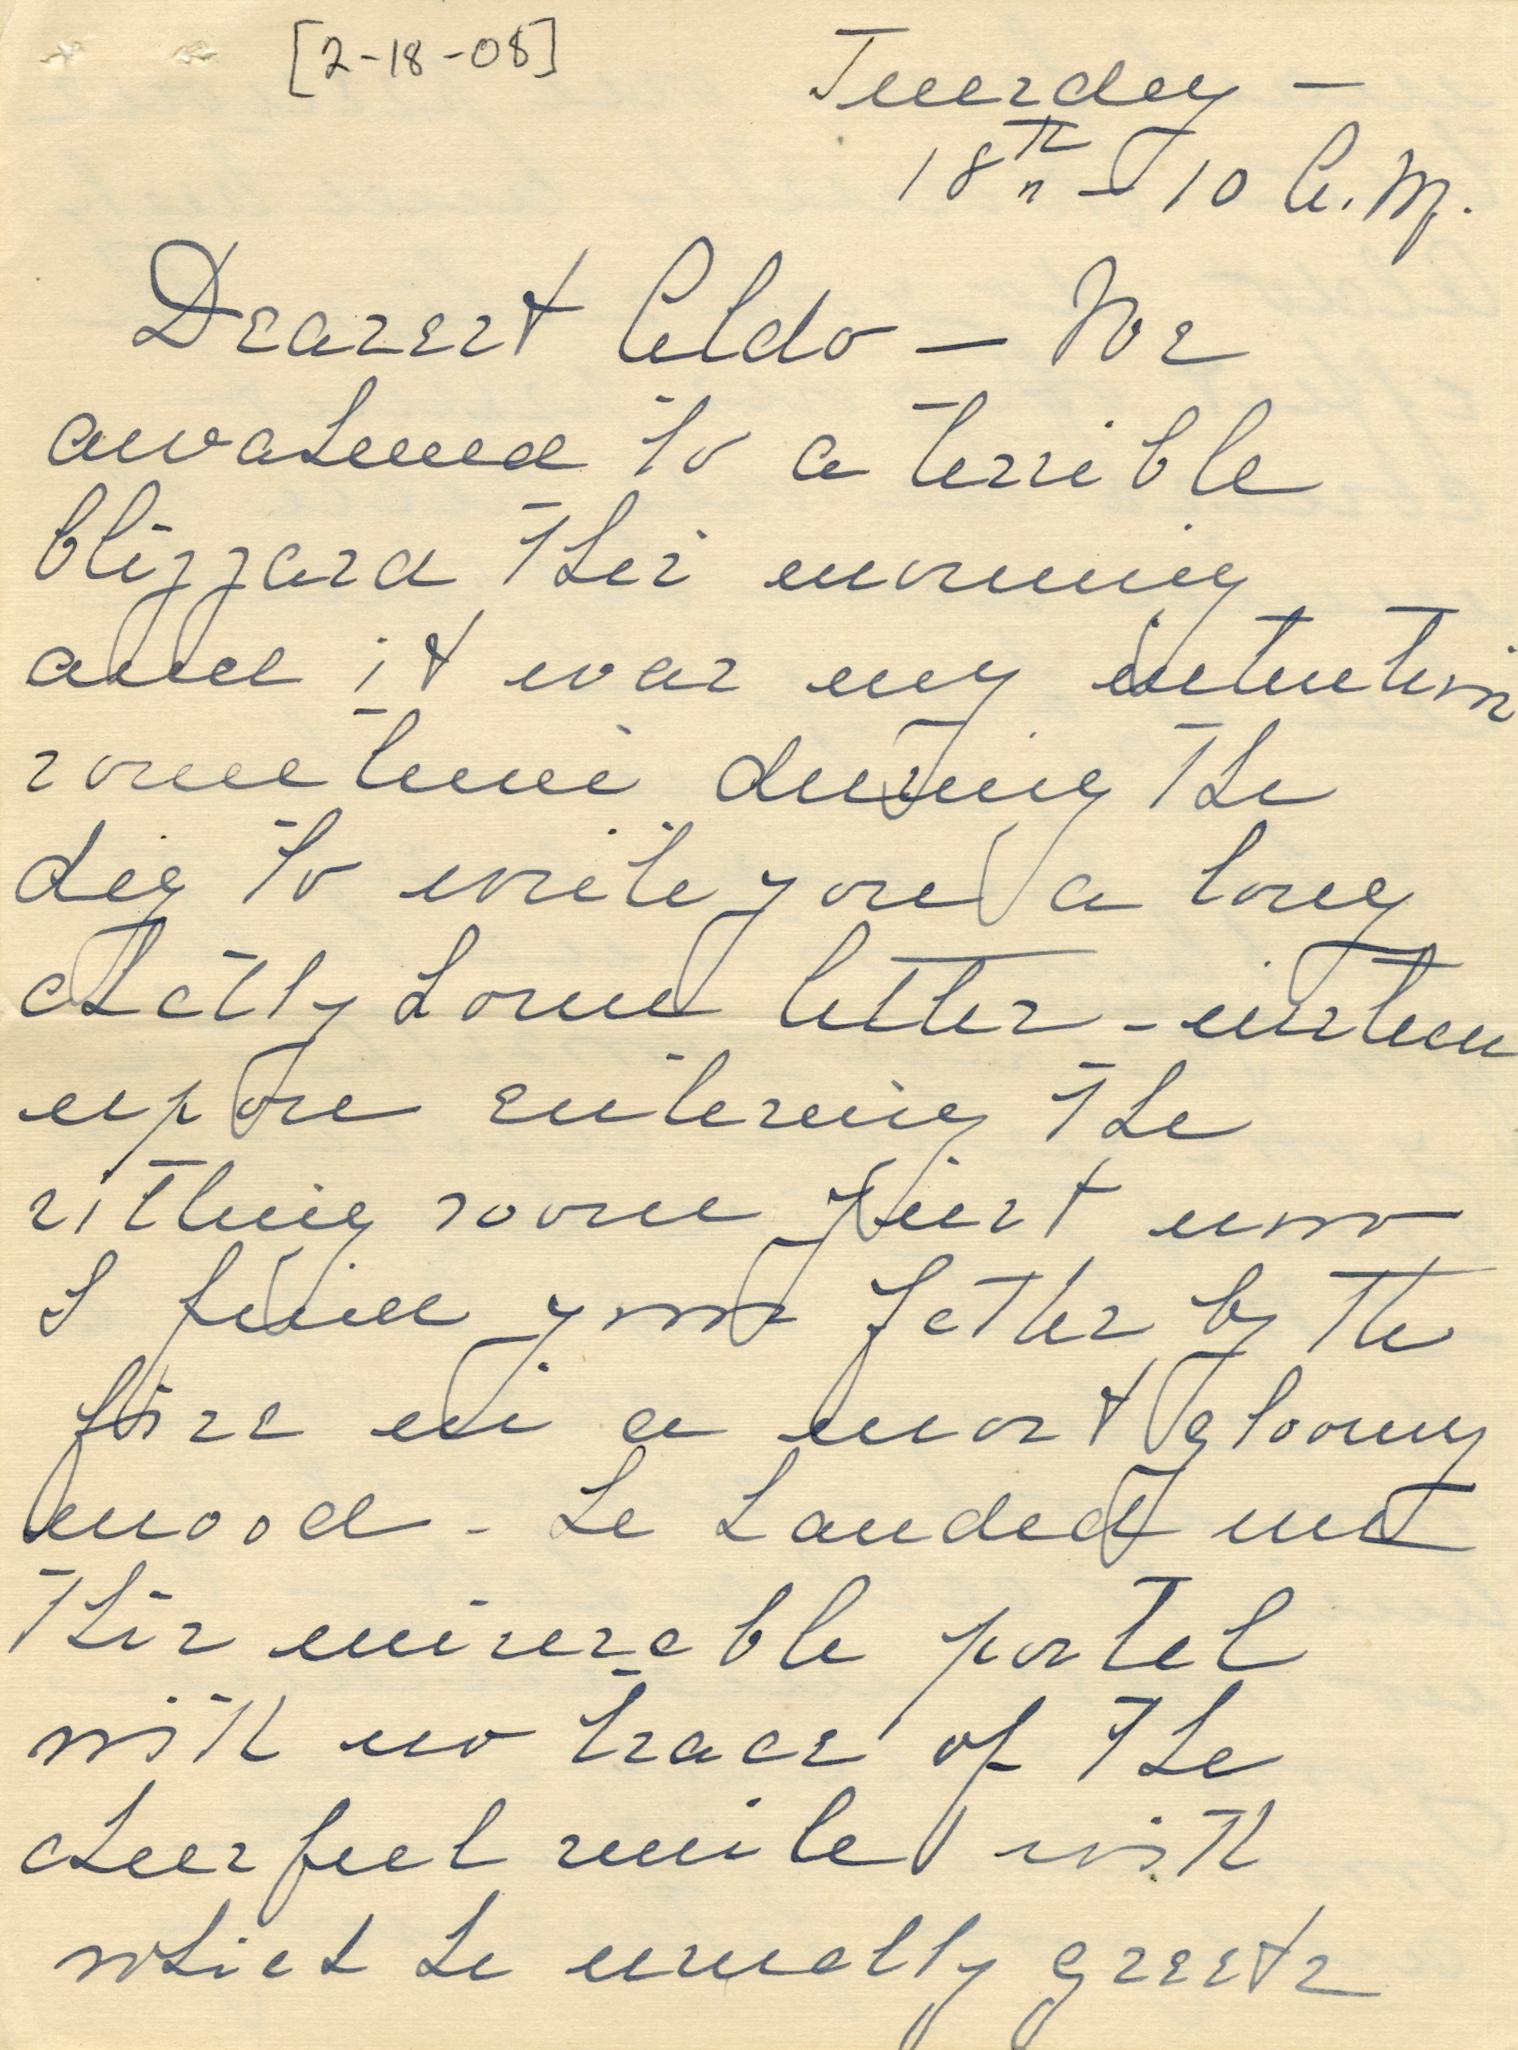 [2-18-08]
Tuesday —
18th — 10 A.M.
Dearest Aldo — We
awakened to a terrible
blizzard this morning
and it was my intention
sometime during the
day to write you a long
chatty home letter - when
upon entering the
sitting room just now
I find your father by the
fire in a most gloomy
mood - he handed me
this miserable postal
with no trace of the
cheerful smile with
which he usually greets